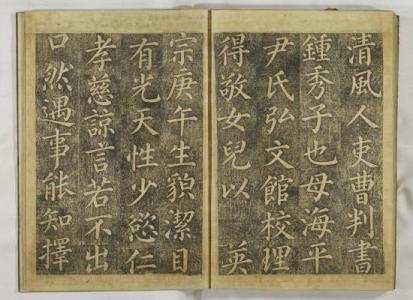 清風人吏曹判書
鍾秀子也母海平
尹氏弘文館校理
得敬女兒以 英
宗庚午生貌潔目
有光天性少慾仁
孝慈諒言若不出
口然遇事能知擇